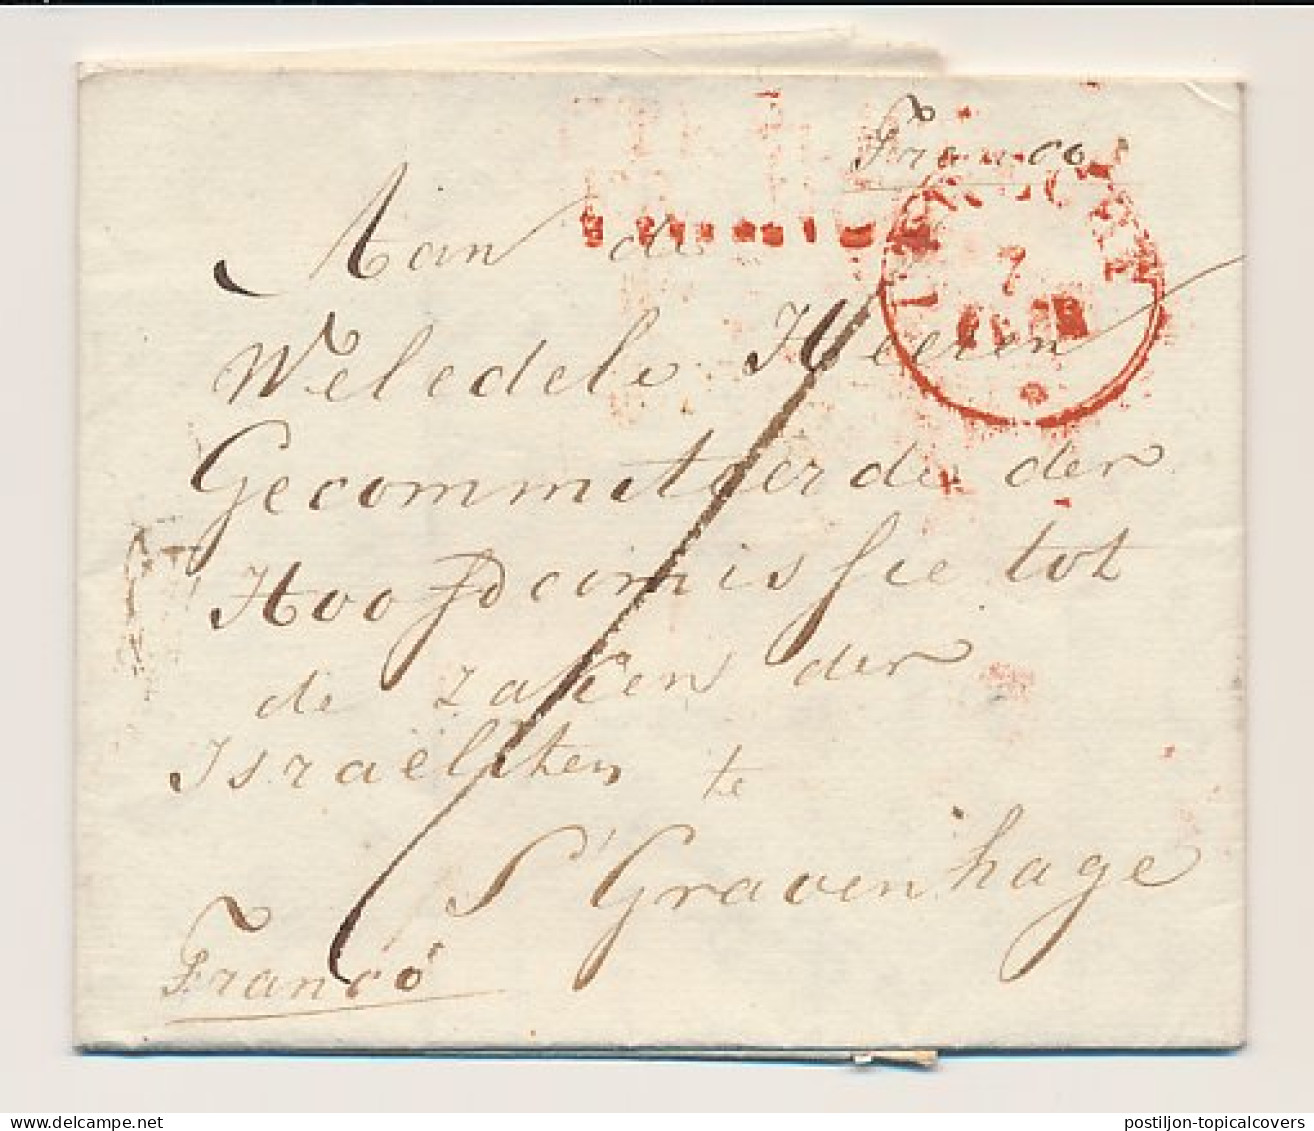 Franco
UTRECHT
7
FEB
Aan de
Weledele Heeren
Gecommitteerde der
Hoofdcomissie tot
de zaken der
Israëliten te
S'Gravenhage
Franco
postiljon-topicalcovers